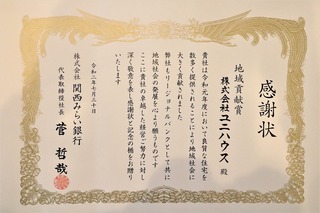 感謝状
地域貢献賞
株式会社ユニハウス 殿
貴社は令和元年度において良質な住宅を
数多く提供されることにより地域社会に
大きく貢献されました
弊社もリージョナルバンクとして共に
地域社会の発展を心より願うものです
ここに貴社の卓越した経営ご努力に対し
深く敬意を表し感謝状と記念の楯をお贈り
いたします
令和二年七月三十日
株式会社 関西みらい銀行
代表取締役社長 菅 哲哉